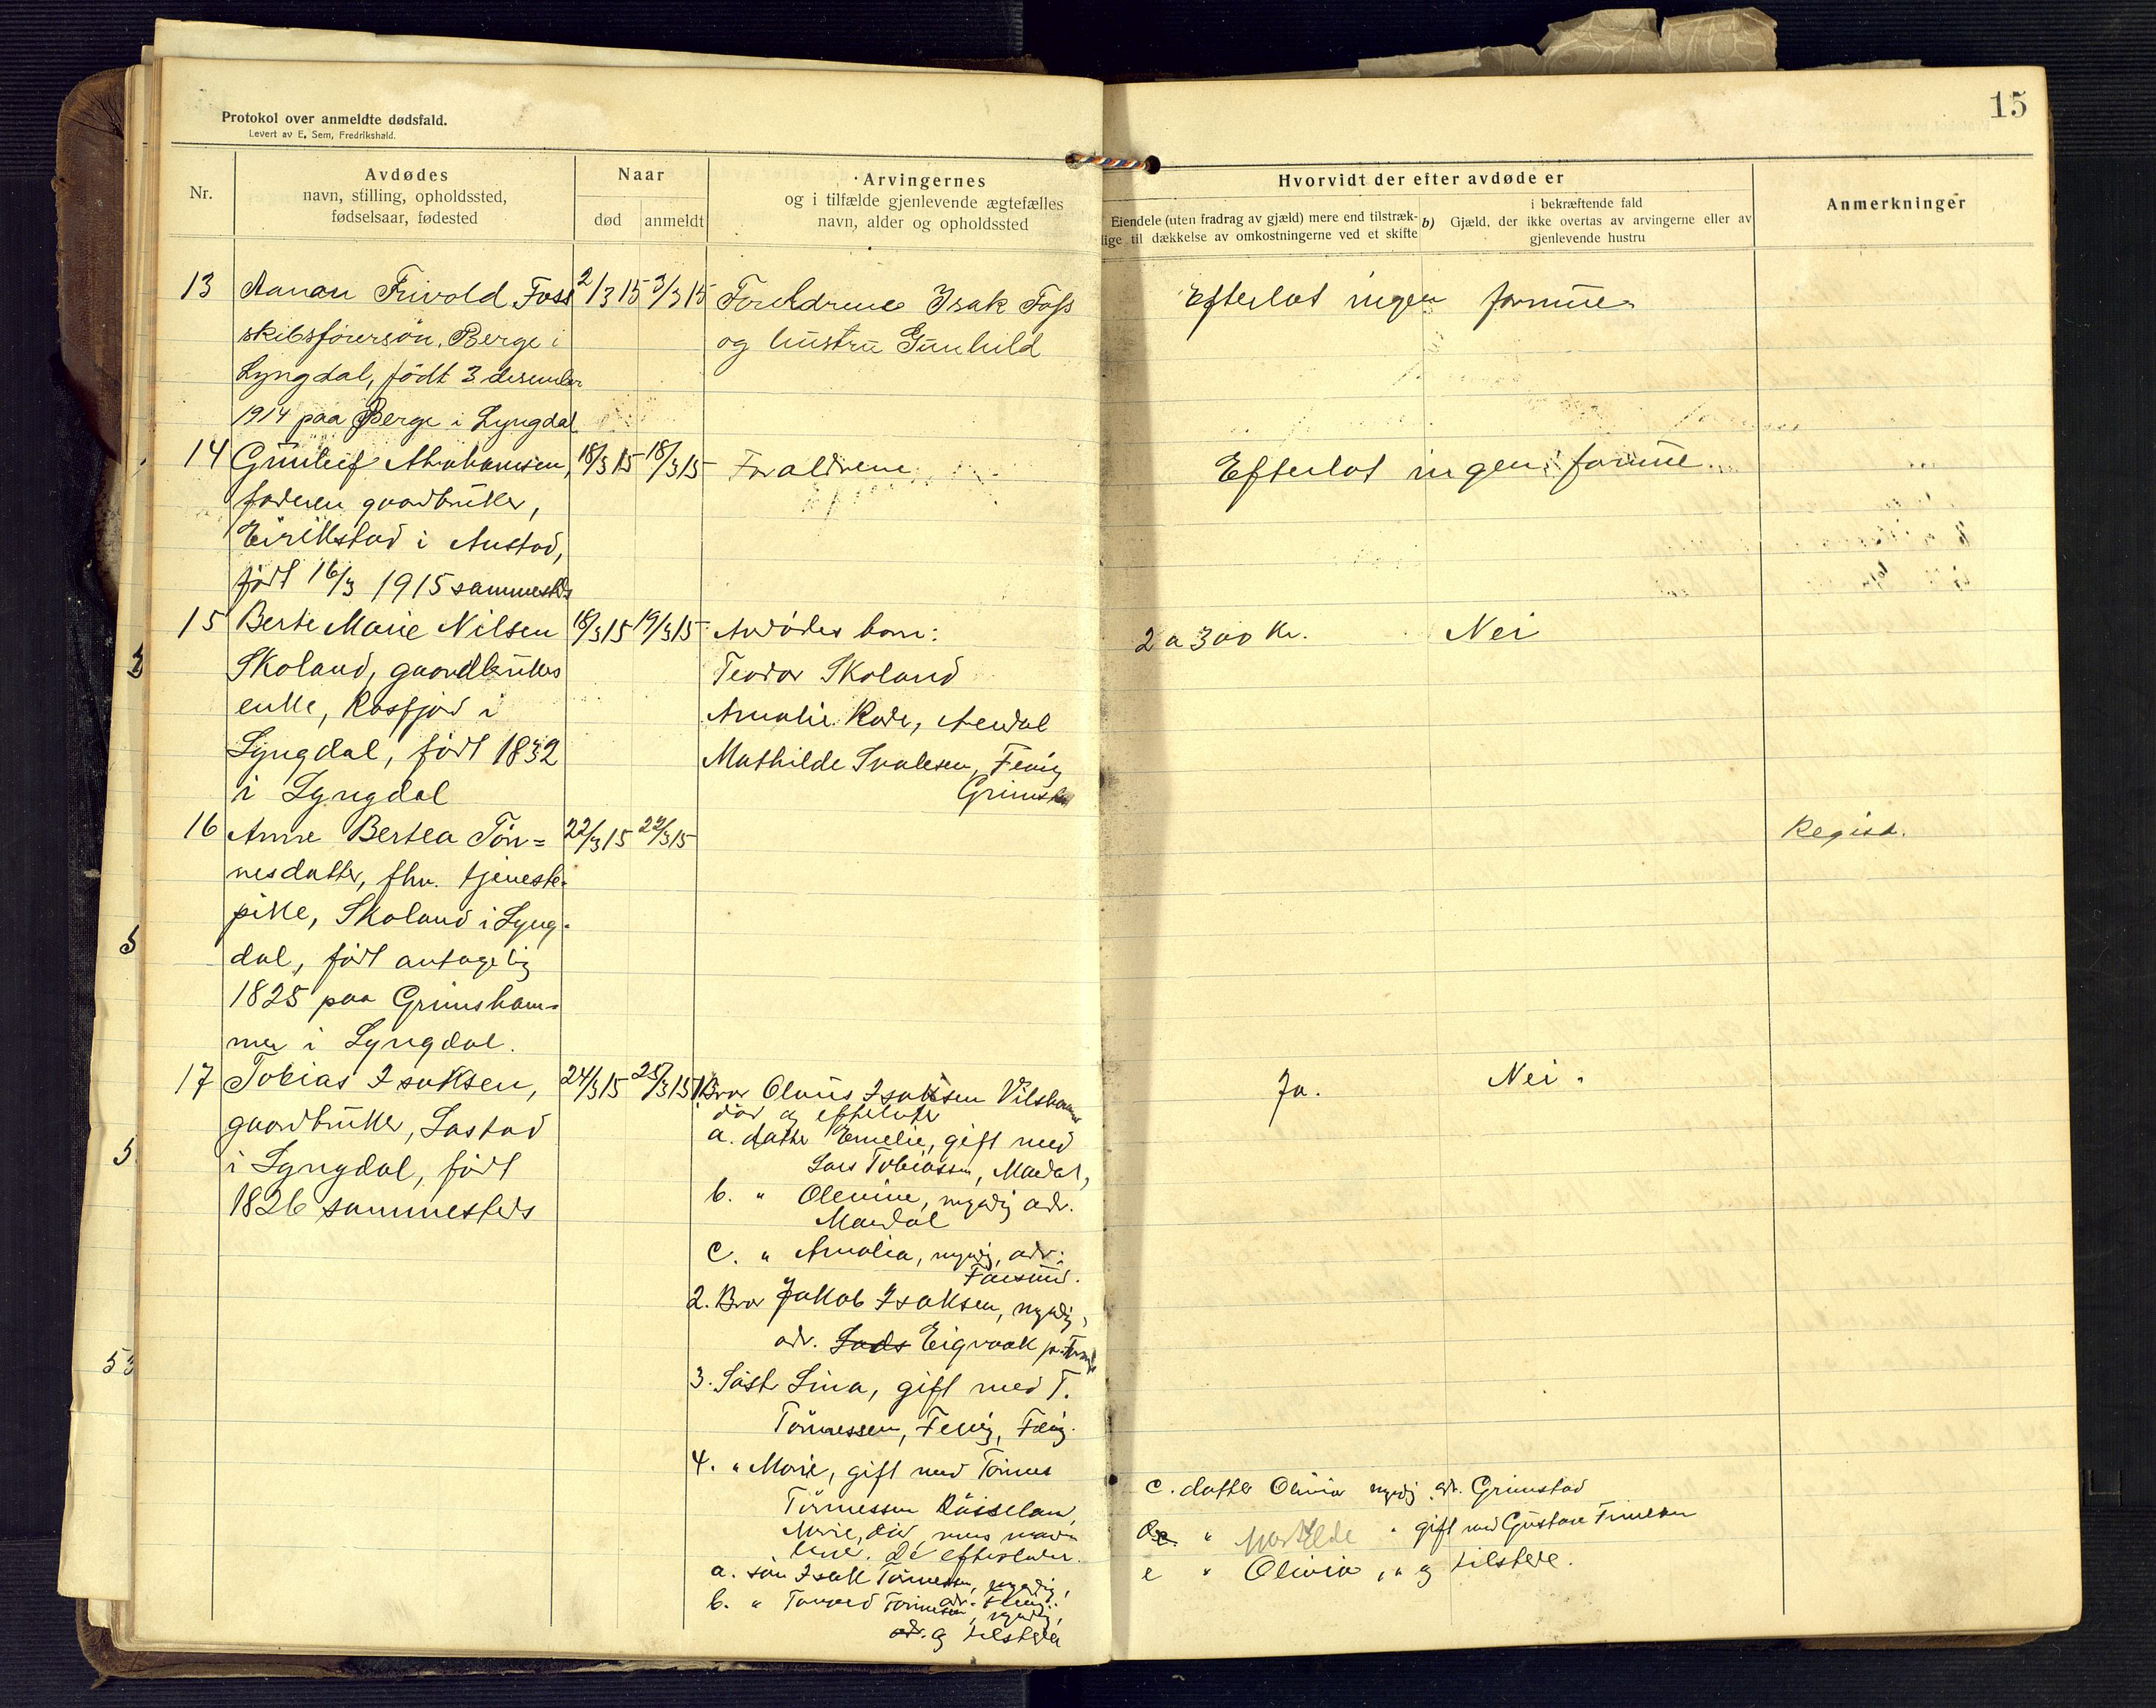 15
Protokol over anmeldte dødsfald.
Levert av E. Sem, Fredrikshald.
Nr.
Avdødes
navn, stilling, opholdssted,
fødselsaar, fødested
Naar
død
anmeldt
Arvingernes
og i tilfælde gjenlevende ægtefælles
navn, alder og opholdssted
Hvorvidt der efter avdøde er
Eiendele (uten fradrag av gjæld) mere end tilstræk-
lige til dækkelse av omkostningerne ved et skifte
b) Gjæld, der
i bekræftende fald
ikke overtas av arvingerne eller av
gjenlevende hustru
Anmerkninger
13 Aanan Frivold Foss 2/3 15 3/3 15 Foreldrene Isak Foss Efterlot ingen formue
skibsførersøn, Berge i og hustru Gunhild
Lyngdal, født 3 desember
1914 paa Berge i Lyngdal
14 Gunleif Abrahamsen, 18/3 15 18/3 15 Foreldrene Efterlot ingen formue
faderen gaardbruker,
Eirikstad i Austad,
født 16/3 1915 sammesteds
15 Berte Marie Nilsen 18/3 15 19/3 15 Avdødes barn: 2 a 300 Kr. Nei
Skoland, gaardbrukers Teodor Skoland
enke, Rosfjord i Amalie Rode, Arendal
Lyngdal, født 1832 Mathilde Svalesen, Fevig
i Lyngdal Grimstad
16 Anne Bertea Tøn= 22/3 15 22/3 15 Regist.
nesdatter, fhv. tjeneste-
pike, Skoland i Lyng-
dal, født antagelig
1825 paa Grimsham=
mer i Lyngdal.
17 Tobias Isaksen, 24/3 15 25/3 15 1. Bror Olaus Isaksen Ja. Nei.
gaardbruker, død og efterlater
i Lyngdal, født a. datter Emelie, gift med
1826 sammesteds Lars Tobiassen, Mandal,
b. " Olenine, myndig adr.
Mandal
c. " Amalia, myndig, adr.
Farsund.
2. Bror Jakob Isaksen, myndig,
adr. Eigvaak
3. Søst. Lina, gift med T.
Tønnessen, Fevig,
4. " Marie, gift med Tønnes
Tønnessen
Marie, død,
De efterlater
a. søn Isak Tønnessen, myndig,
adr. Fevig.
b. " Tønnessen, myndig,
adr. og tilstede
c. datter Olivia myndig adr. Grimstad
" gift med Gustave
e " Olivia, " og tilstede.